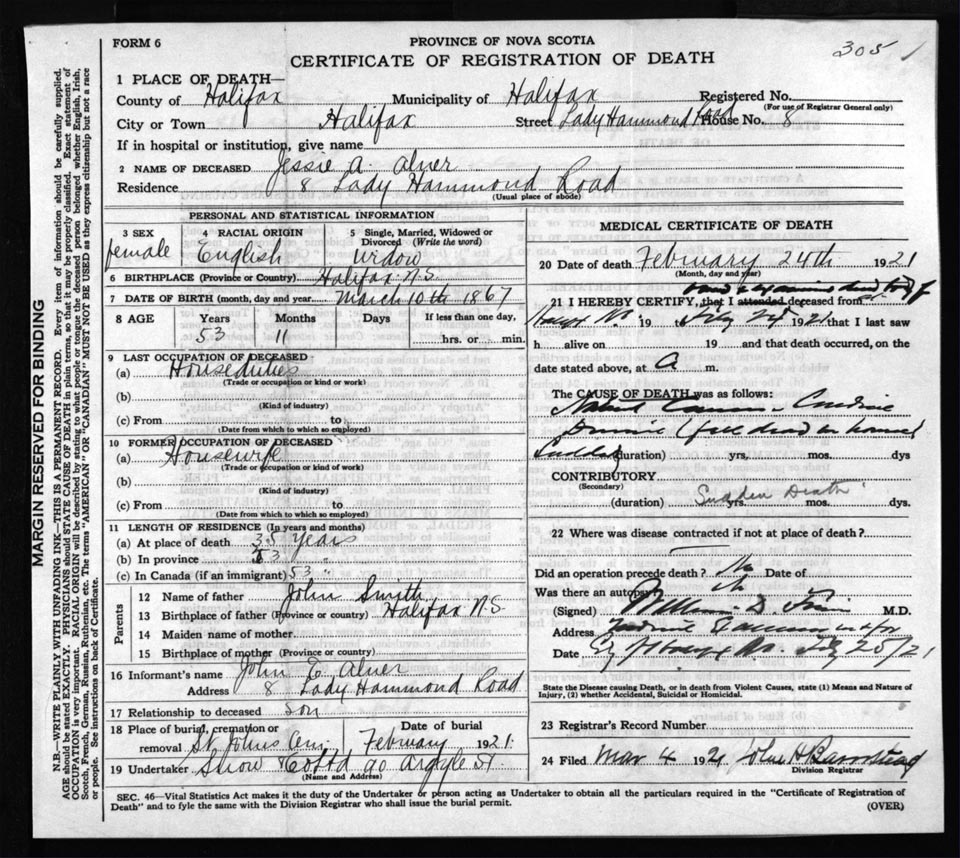 FORM 6
PROVINCE OF NOVA SCOTIA
305
CERTIFICATE OF REGISTRATION OF DEATH
1 PLACE OF DEATH—
County of Halifax Municipality of Halifax Registered No.
(For use of Registrar General only)
City or Town Halifax Street Lady Hammond Road House No. 8
If in hospital or institution, give name
2 NAME OF DECEASED Jessie A. Alner
Residence 8 Lady Hammond Road
(Usual place of abode)
PERSONAL AND STATISTICAL INFORMATION
3 SEX female
4 RACIAL ORIGIN English
5 Single, Married, Widowed or Divorced (Write the word) widow
6 BIRTHPLACE (Province or Country) Halifax N.S.
7 DATE OF BIRTH (month, day and year) March 10th 1867
8 AGE Years Months Days If less than one day,
53 11 hrs. or min.
9 LAST OCCUPATION OF DECEASED
(a) Houseduties
(Trade or occupation or kind or work)
(b)
(Kind of industry)
(c) From to
(Date from which to which so employed)
10 FORMER OCCUPATION OF DECEASED
(a) Housewife
(Trade or occupation or kind of work)
(b)
(Kind of industry)
(c) From to
(Date from which to which so employed)
11 LENGTH OF RESIDENCE (In years and months)
(a) At place of death 35 years
(b) In province 53
(c) In Canada (if an immigrant) 53 "
Parents
12 Name of father John Smith
13 Birthplace of father (Province or country) Halifax N.S.
14 Maiden name of mother
15 Birthplace of mother (Province or country)
16 Informant's name John E. Alner
Address 8 Lady Hammond Road
17 Relationship to deceased Son
18 Place of burial, cremation or removal St. Johns Cem. Date of burial February 1921
19 Undertaker Snow & Co Ltd 90 Argyle St.
(Name and Address)
MEDICAL CERTIFICATE OF DEATH
20 Date of death February 24th 1921
(Month, day and year)
21 I HEREBY CERTIFY, that I attended deceased from
19 Feby 24 1921 that I last saw
h alive on 19 and that death occurred, on the
date stated above, at A m.
The CAUSE OF DEATH was as follows:
Natural Causes
(fell dead
(duration) yrs. mos. dys
CONTRIBUTORY
(Secondary)
Sudden Death
(duration) yrs. mos. dys.
22 Where was disease contracted if not at place of death?
Did an operation precede death? No Date of
Was there an autopsy? No
(Signed) William D. M.D.
Address Medical Examiner
Date Feby 25/21
State the Disease causing Death, or in death from Violent Causes, state (1) Means and Nature of
Injury, (2) whether Accidental, Suicidal or Homicidal.
23 Registrar's Record Number
24 Filed Mar 4 1921 John H Barnstead
Division Registrar
SEC. 46—Vital Statistics Act makes it the duty of the Undertaker or person acting as Undertaker to obtain all the particulars required in the "Certificate of Registration of
Death" and to fyle the same with the Division Registrar who shall issue the burial permit.
(OVER)
MARGIN RESERVED FOR BINDING
N.B.—WRITE PLAINLY WITH UNFADING INK—THIS IS A PERMANENT RECORD. Every item of information should be carefully supplied.
AGE should be stated EXACTLY. PHYSICIANS should STATE CAUSE OF DEATH in plain terms, so that it may be properly classified. Exact statement of
OCCUPATION is very important. RACIAL ORIGIN will be described by stating to what people or tongue the deceased person belonged whether English, Irish,
Scotch, French, German, Russian, Ruthenian, etc. The terms "AMERICAN" OR "CANADIAN" MUST NOT BE USED as they express citizenship but not a race
or people. See instructions on back of Certificate.